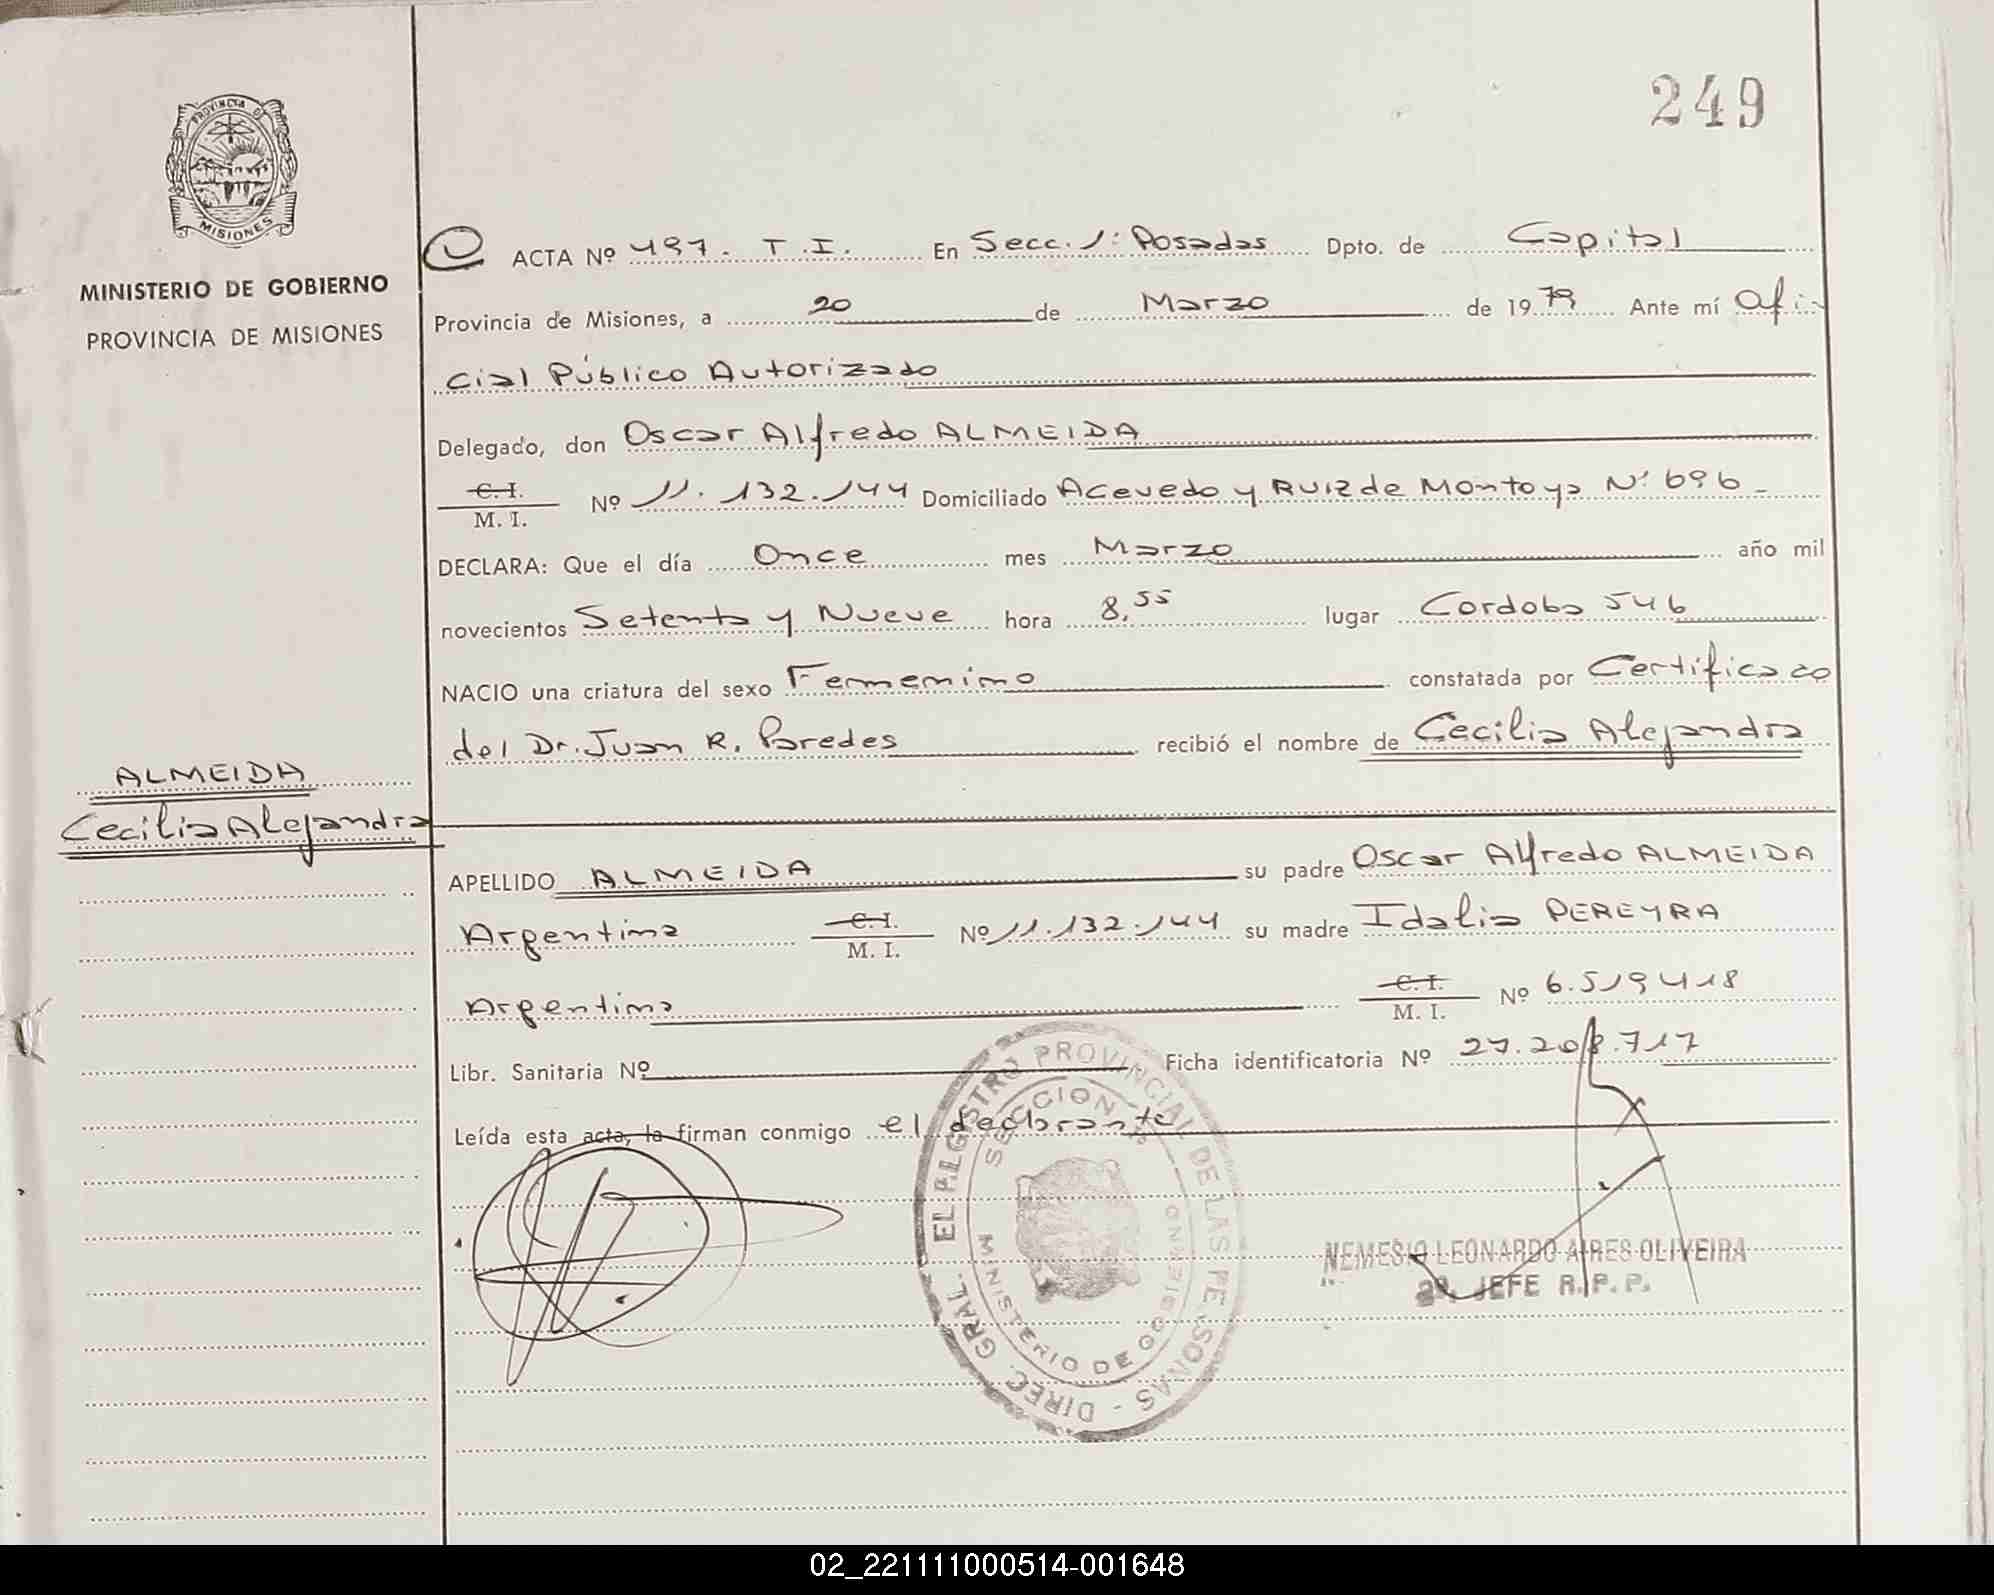 249
PROVINCIA DE
MISIONES
MINISTERIO DE GOBIERNO
PROVINCIA DE MISIONES
ACTA Nº 497. T.I. En Secc. 1ª Posadas Dpto. de Capital
Provincia de Misiones, a 20 de Marzo de 1979 Ante mí Ofi-
cial Público Autorizado
Delegado, don Oscar Alfredo ALMEIDA
C. I.
M. I. Nº 11.132.144 Domiciliado Acevedo y Ruiz de Montoya Nº 696
DECLARA: Que el día Once mes Marzo año mil
novecientos Setenta y Nueve hora 8,55 lugar Cordoba 546
NACIO una criatura del sexo Femenino constatada por Certificado
del Dr. Juan R. Paredes recibió el nombre de Cecilia Alejandra
ALMEIDA
Cecilia Alejandra
APELLIDO ALMEIDA su padre Oscar Alfredo ALMEIDA
Argentina C. I. M. I. Nº 11.132.144 su madre Idalia PEREYRA
Argentina C. I. M. I. Nº 6.519418
Libr. Sanitaria Nº Ficha identificatoria Nº 27.208.717
Leída esta acta, la firman conmigo el declarante
DIREC. GRAL. DEL REGISTRO PROVINCIAL DE LAS PERSONAS
SECCION
MINISTERIO DE GOBIERNO
NEMESIO LEONARDO AIRES OLIVEIRA
JEFE R.P.P.
02_221111000514-001648